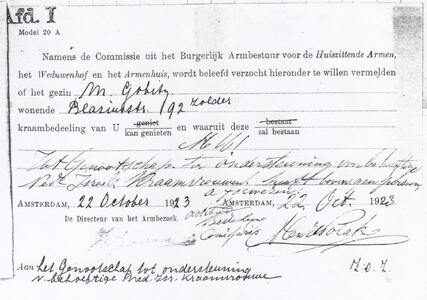 Afd. I
Model 20 A.
Namens de Commissie uit het Burgerlijk Armbestuur voor de Huiszittende Armen,
het Weduwenhof en het Armenhuis, wordt beleefd verzocht hieronder te willen vermelden
of het gezin M. Gobitz
wonende Blasiusstr. 192 zolder
kraambedeeling van U geniet kan genieten en waaruit deze bestaat zal bestaan
Het Genootschap ter ondersteuning van behoeftige
Ned. Israel. Kraamvrouwen heeft bovengen.
AMSTERDAM, 22 October 1923 AMSTERDAM, 22 Oct. 1923
De Directeur van het Armbezoek.
Aan het Genootschap tot ondersteuning
v. behoeftige Ned. Isr. Kraamvrouwe